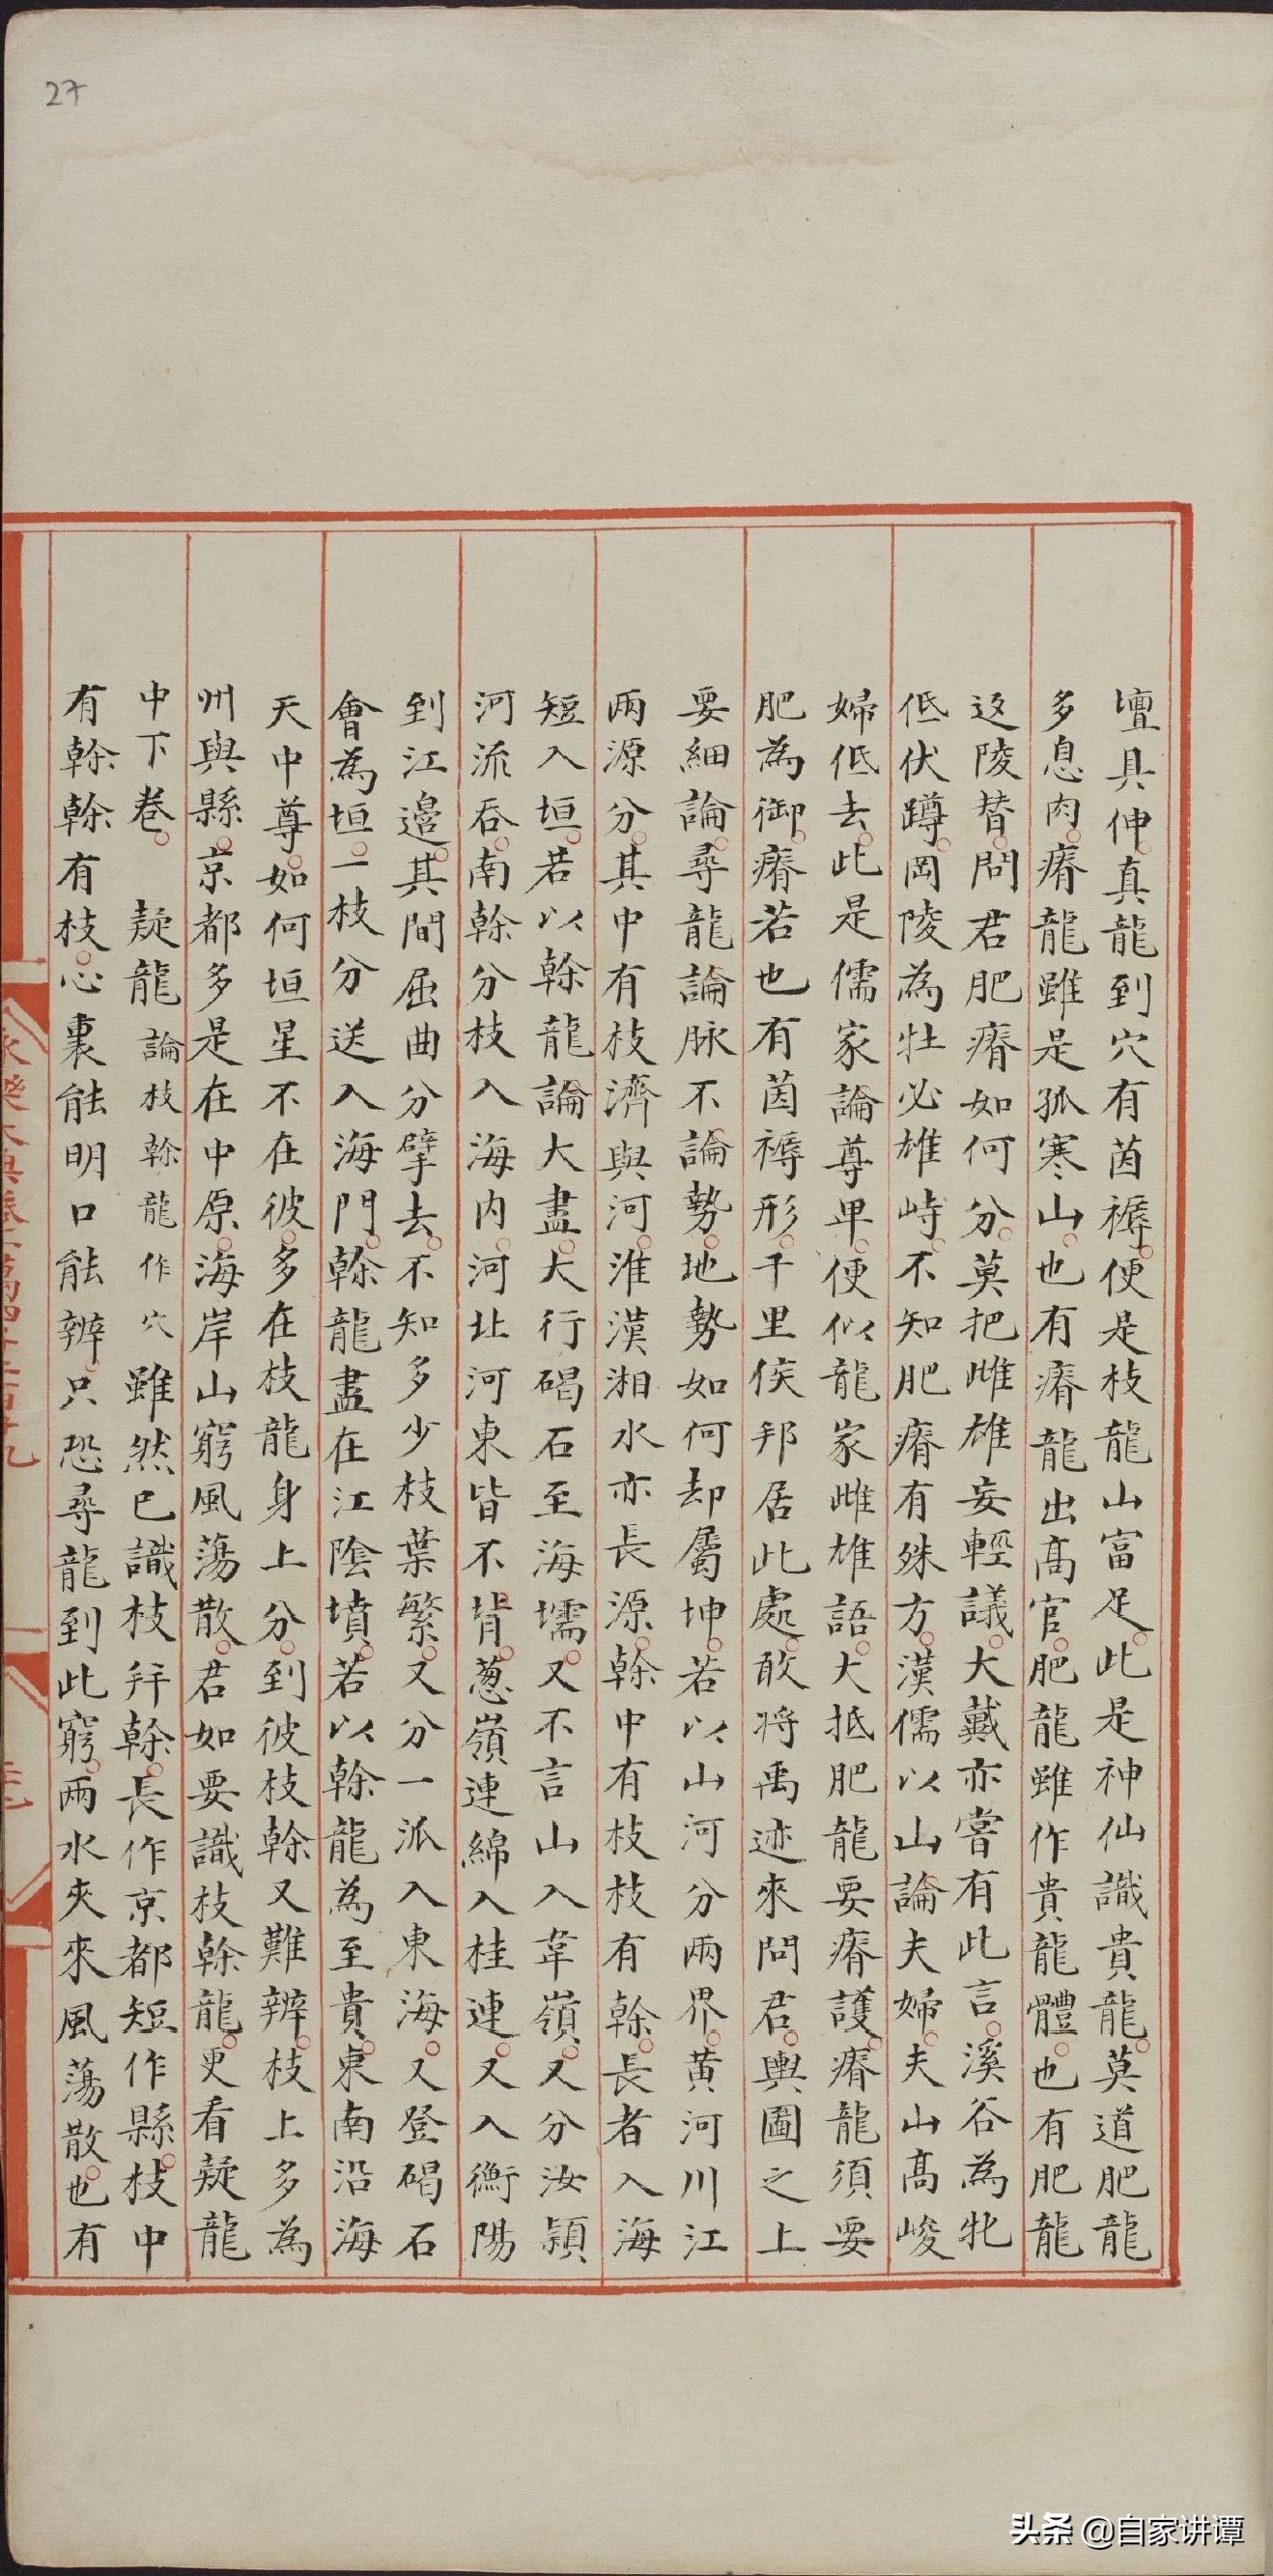 27
壇具伸真龍到穴有茵褥便是枝龍山富足此是神仙識貴龍莫道肥龍
多息肉瘠龍雖是孤寒山也有瘠龍出髙官肥龍雖作貴龍體也有肥龍
返陵替問君肥瘠如何分莫把雌雄妄輕議大戴亦嘗有此言溪谷為牝
低伏蹲岡陵為牡必雄峙不知肥瘠有殊方漢儒以山論夫婦夫山髙峻
婦低去此是儒家論尊卑便似龍家雌雄語大抵肥龍要瘠護瘠龍須要
肥為御瘠若也有茵褥形千里侯邦居此處敢將禹迹來問君輿圖之上
要細論尋龍論脉不論勢地勢如何却屬坤若以山河分兩界黄河川江
兩源分其中有枝濟與河淮漢湘水亦長源榦中有枝枝有榦長者入海
短入垣若以榦龍論大盡大行碣石至海壖又不言山入韋嶺又分汝潁
河流吞南榦分枝入海内河北河東皆不背葱嶺連綿入桂連又入衡陽
到江邉其間屈曲分擘去不知多少枝葉繁又分一派入東海又登碣石
會為垣一枝分送入海門榦龍盡在江陰墳若以榦龍為至貴東南沿海
天中尊如何垣星不在彼多在枝龍身上分到彼枝榦又難辨枝上多為
州與縣京都多是在中原海岸山窮風蕩散君如要識枝榦龍更看疑龍
中下卷 疑龍論枝榦龍作穴 雖然已識枝并榦長作京都短作縣枝中
有榦榦有枝心裏能明口能辨只恐尋龍到此窮兩水夾來風蕩散也有
頭条 @自家讲谭